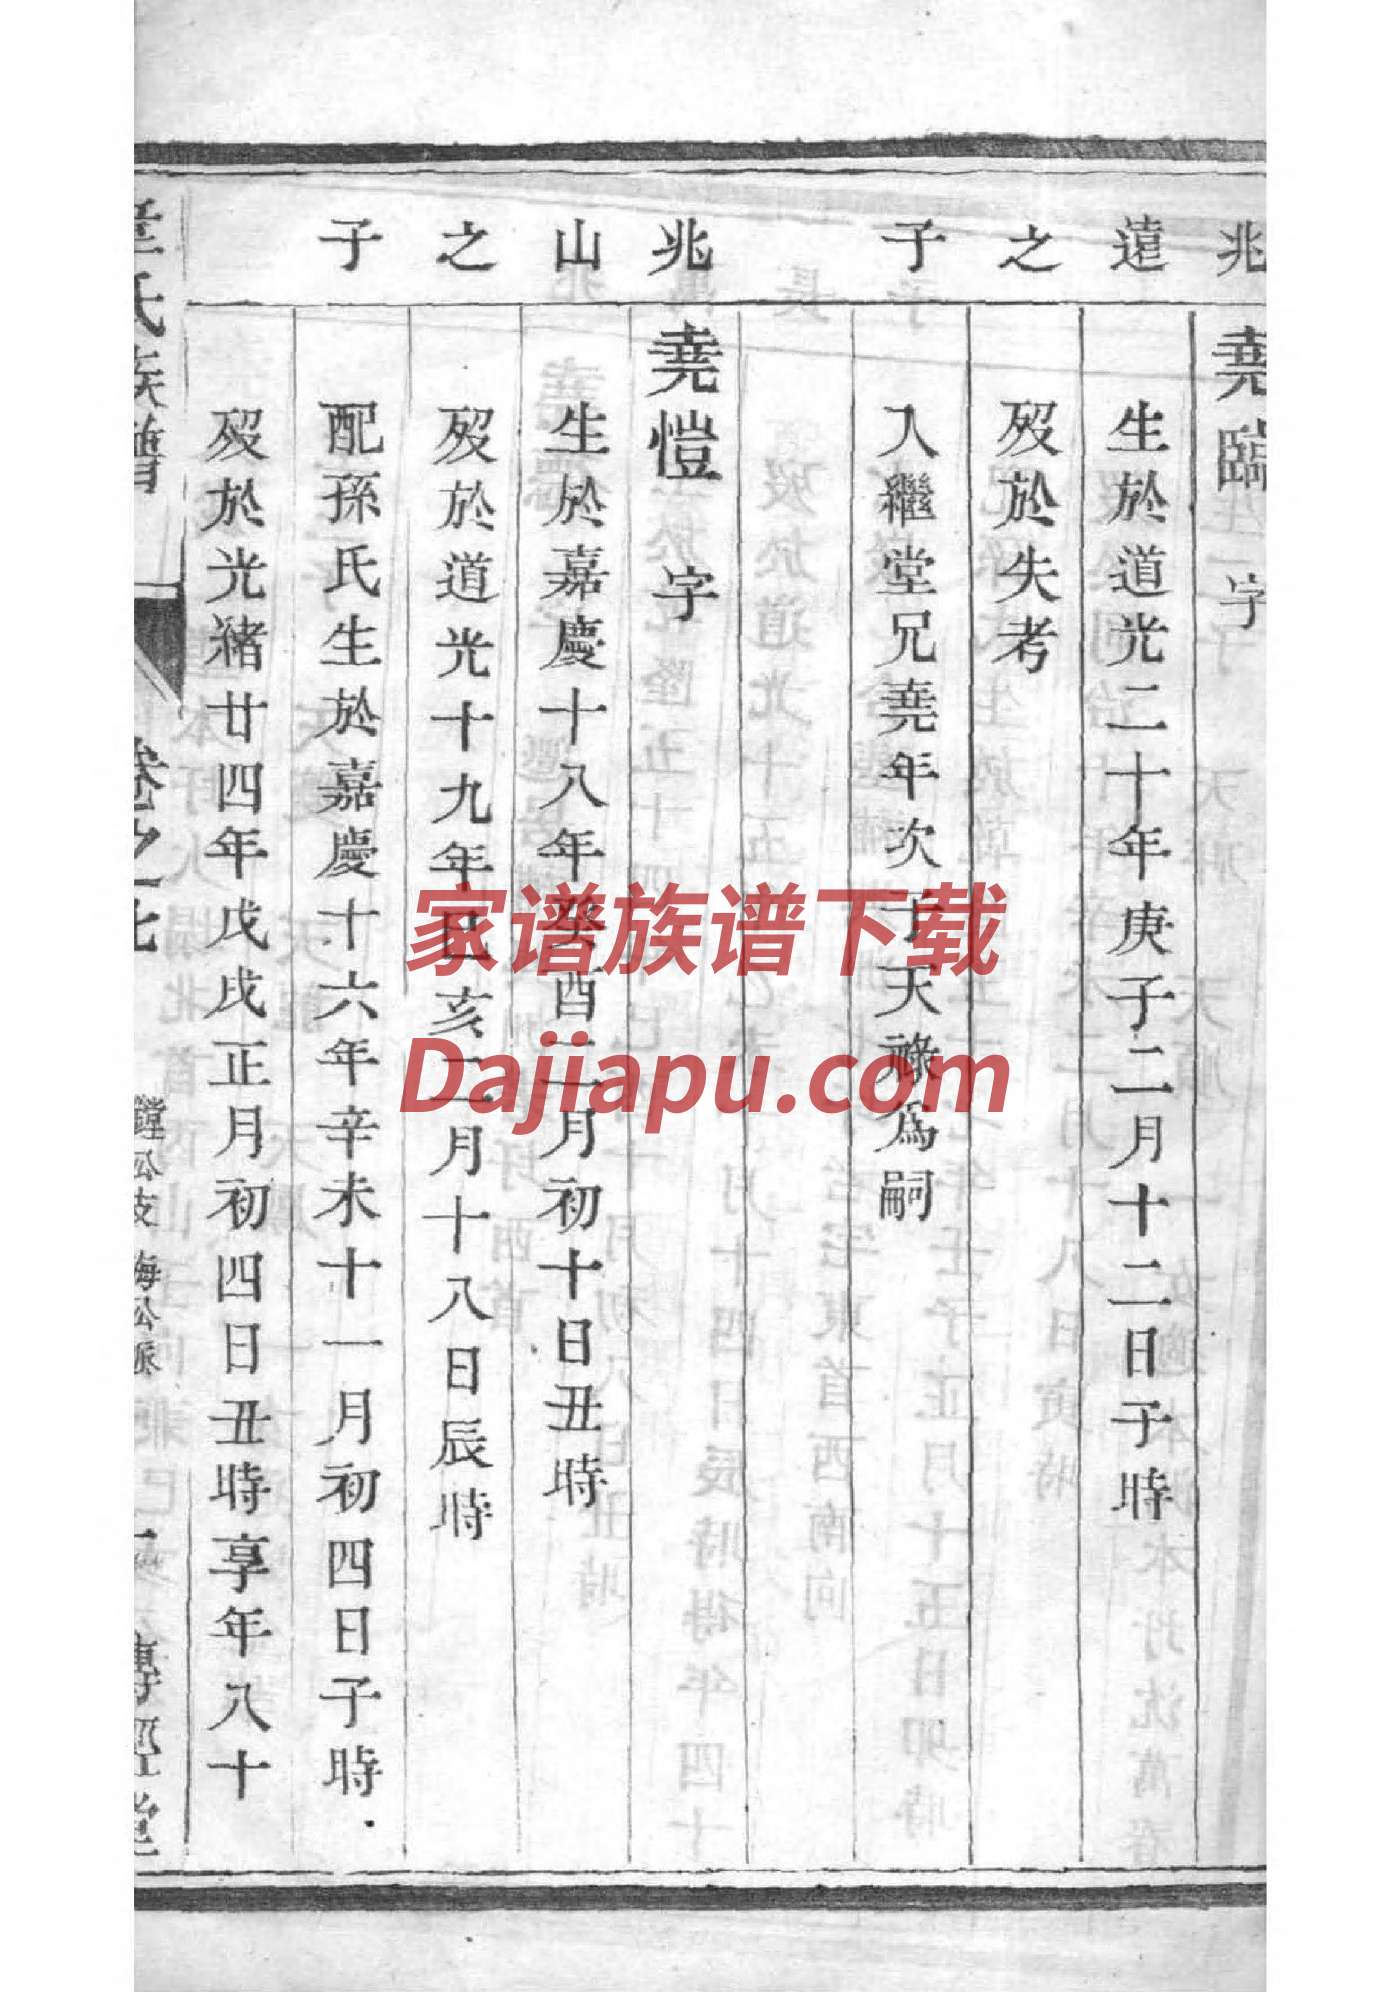 兆遠之子
堯臨 字
生於道光二十年庚子二月十二日子時
歿於失考
入繼堂兄堯年次子天祿爲嗣
兆山之子
堯愷 字
生於嘉慶十八年癸酉二月初十日丑時
歿於道光十九年己亥二月十八日辰時
配孫氏生於嘉慶十六年辛未十一月初四日子時
歿於光緒廿四年戊戌正月初四日丑時享年八十
氏族譜
卷之七
鏜公支 海公派
傳經堂
家谱族谱下载
Dajiapu.com